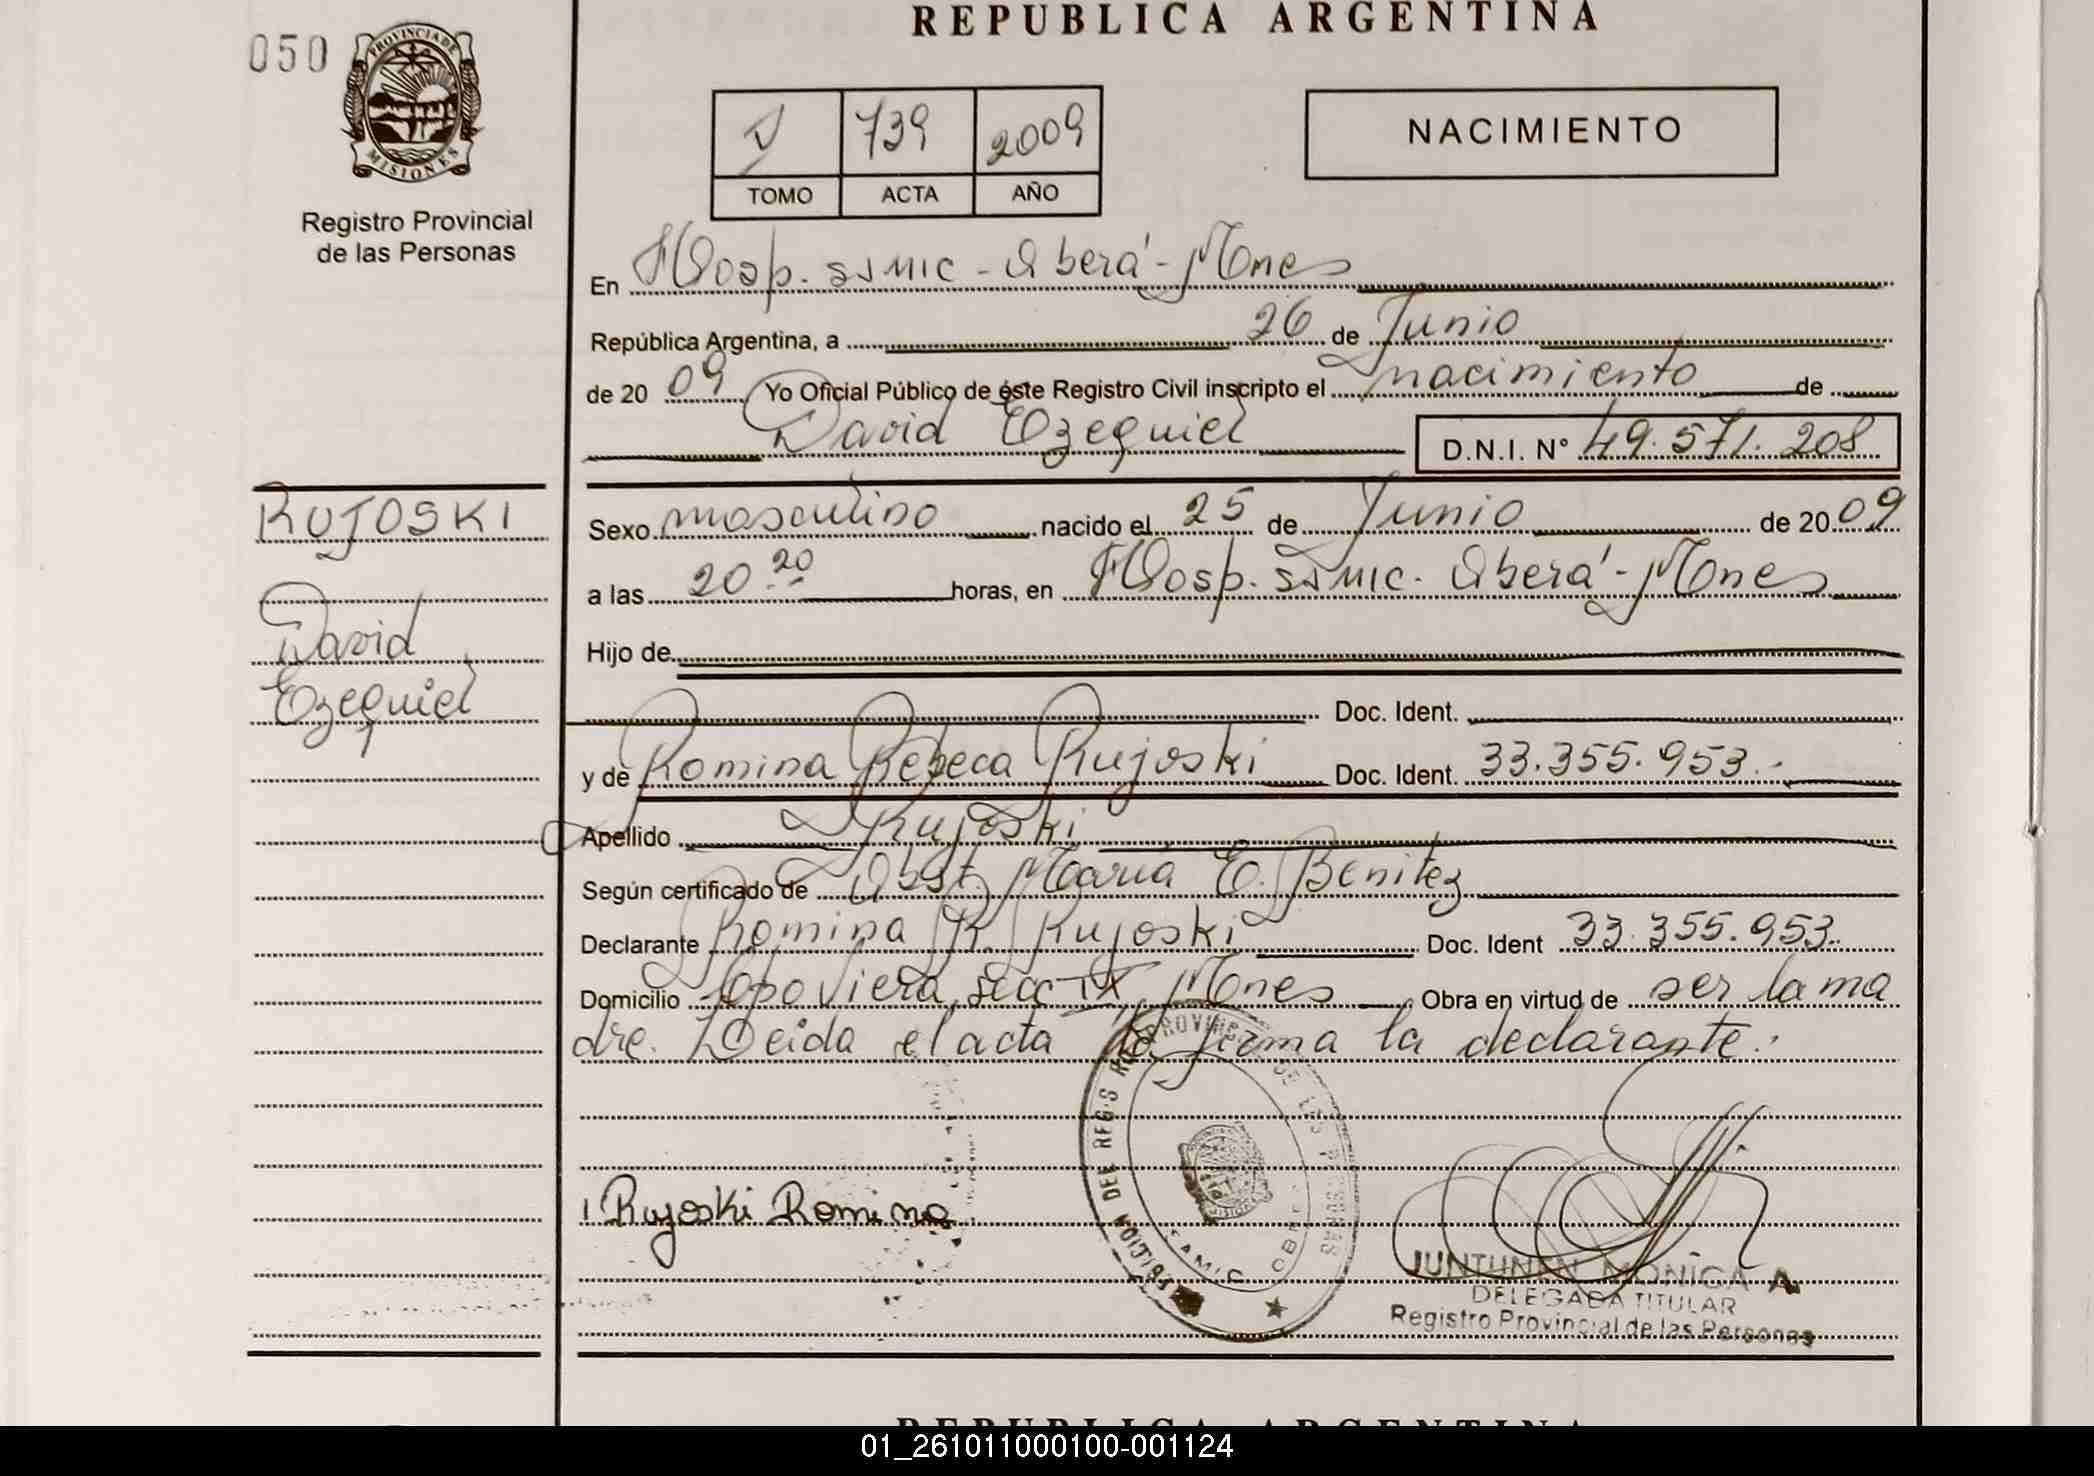 REPUBLICA ARGENTINA
050
PROVINCIA DE
MISIONES
Registro Provincial
de las Personas
V 739 2009
TOMO ACTA AÑO
NACIMIENTO
En Hosp. SAMIC - Oberá - Mnes
República Argentina, a 26 de Junio
de 20 09 Yo Oficial Público de éste Registro Civil inscripto el nacimiento de
David Ezequiel D.N.I. N° 49.571.208
RUJOSKI
David
Ezequiel
Sexo masculino nacido el 25 de Junio de 20 09
a las 20.20 horas, en Hosp. SAMIC. Oberá - Mnes
Hijo de
Doc. Ident.
y de Romina Rebeca Rujoski Doc. Ident. 33.355.953.-
Apellido Rujoski
Según certificado de Obst. María E. Benitez
Declarante Romina R. Rujoski Doc. Ident 33.355.953.
Domicilio Capoviera, Secc IX, Mnes Obra en virtud de ser la ma
dre. Leida el acta la firma la declarante.
Rujoski Romina
SAMIC OBERA
JUNTUNEN MONICA A
DELEGADA TITULAR
Registro Provincial de las Personas
REPUBLICA ARGENTINA
01_261011000100-001124